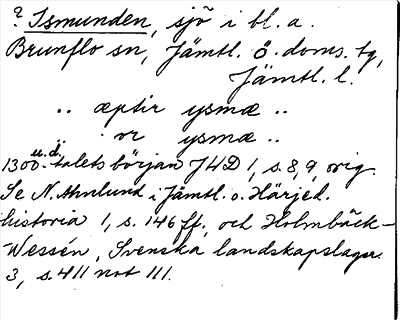 ? Ismunden, sjö i bl. a.
Brunflo sn, Jämtl. Ö. doms. tg,
Jämtl. l.
.. æptir ysmæ ..
.. or ysmæ ..
u.d.
1300-talets början JHD 1, s. 8, 9, orig.
Se N. Ahnlund i Jämtl. o. Härjed.
historia 1, s. 146 ff., och Holmbäck-
Wessén, Svenska landskapslagar
3, s. 411 not 111.